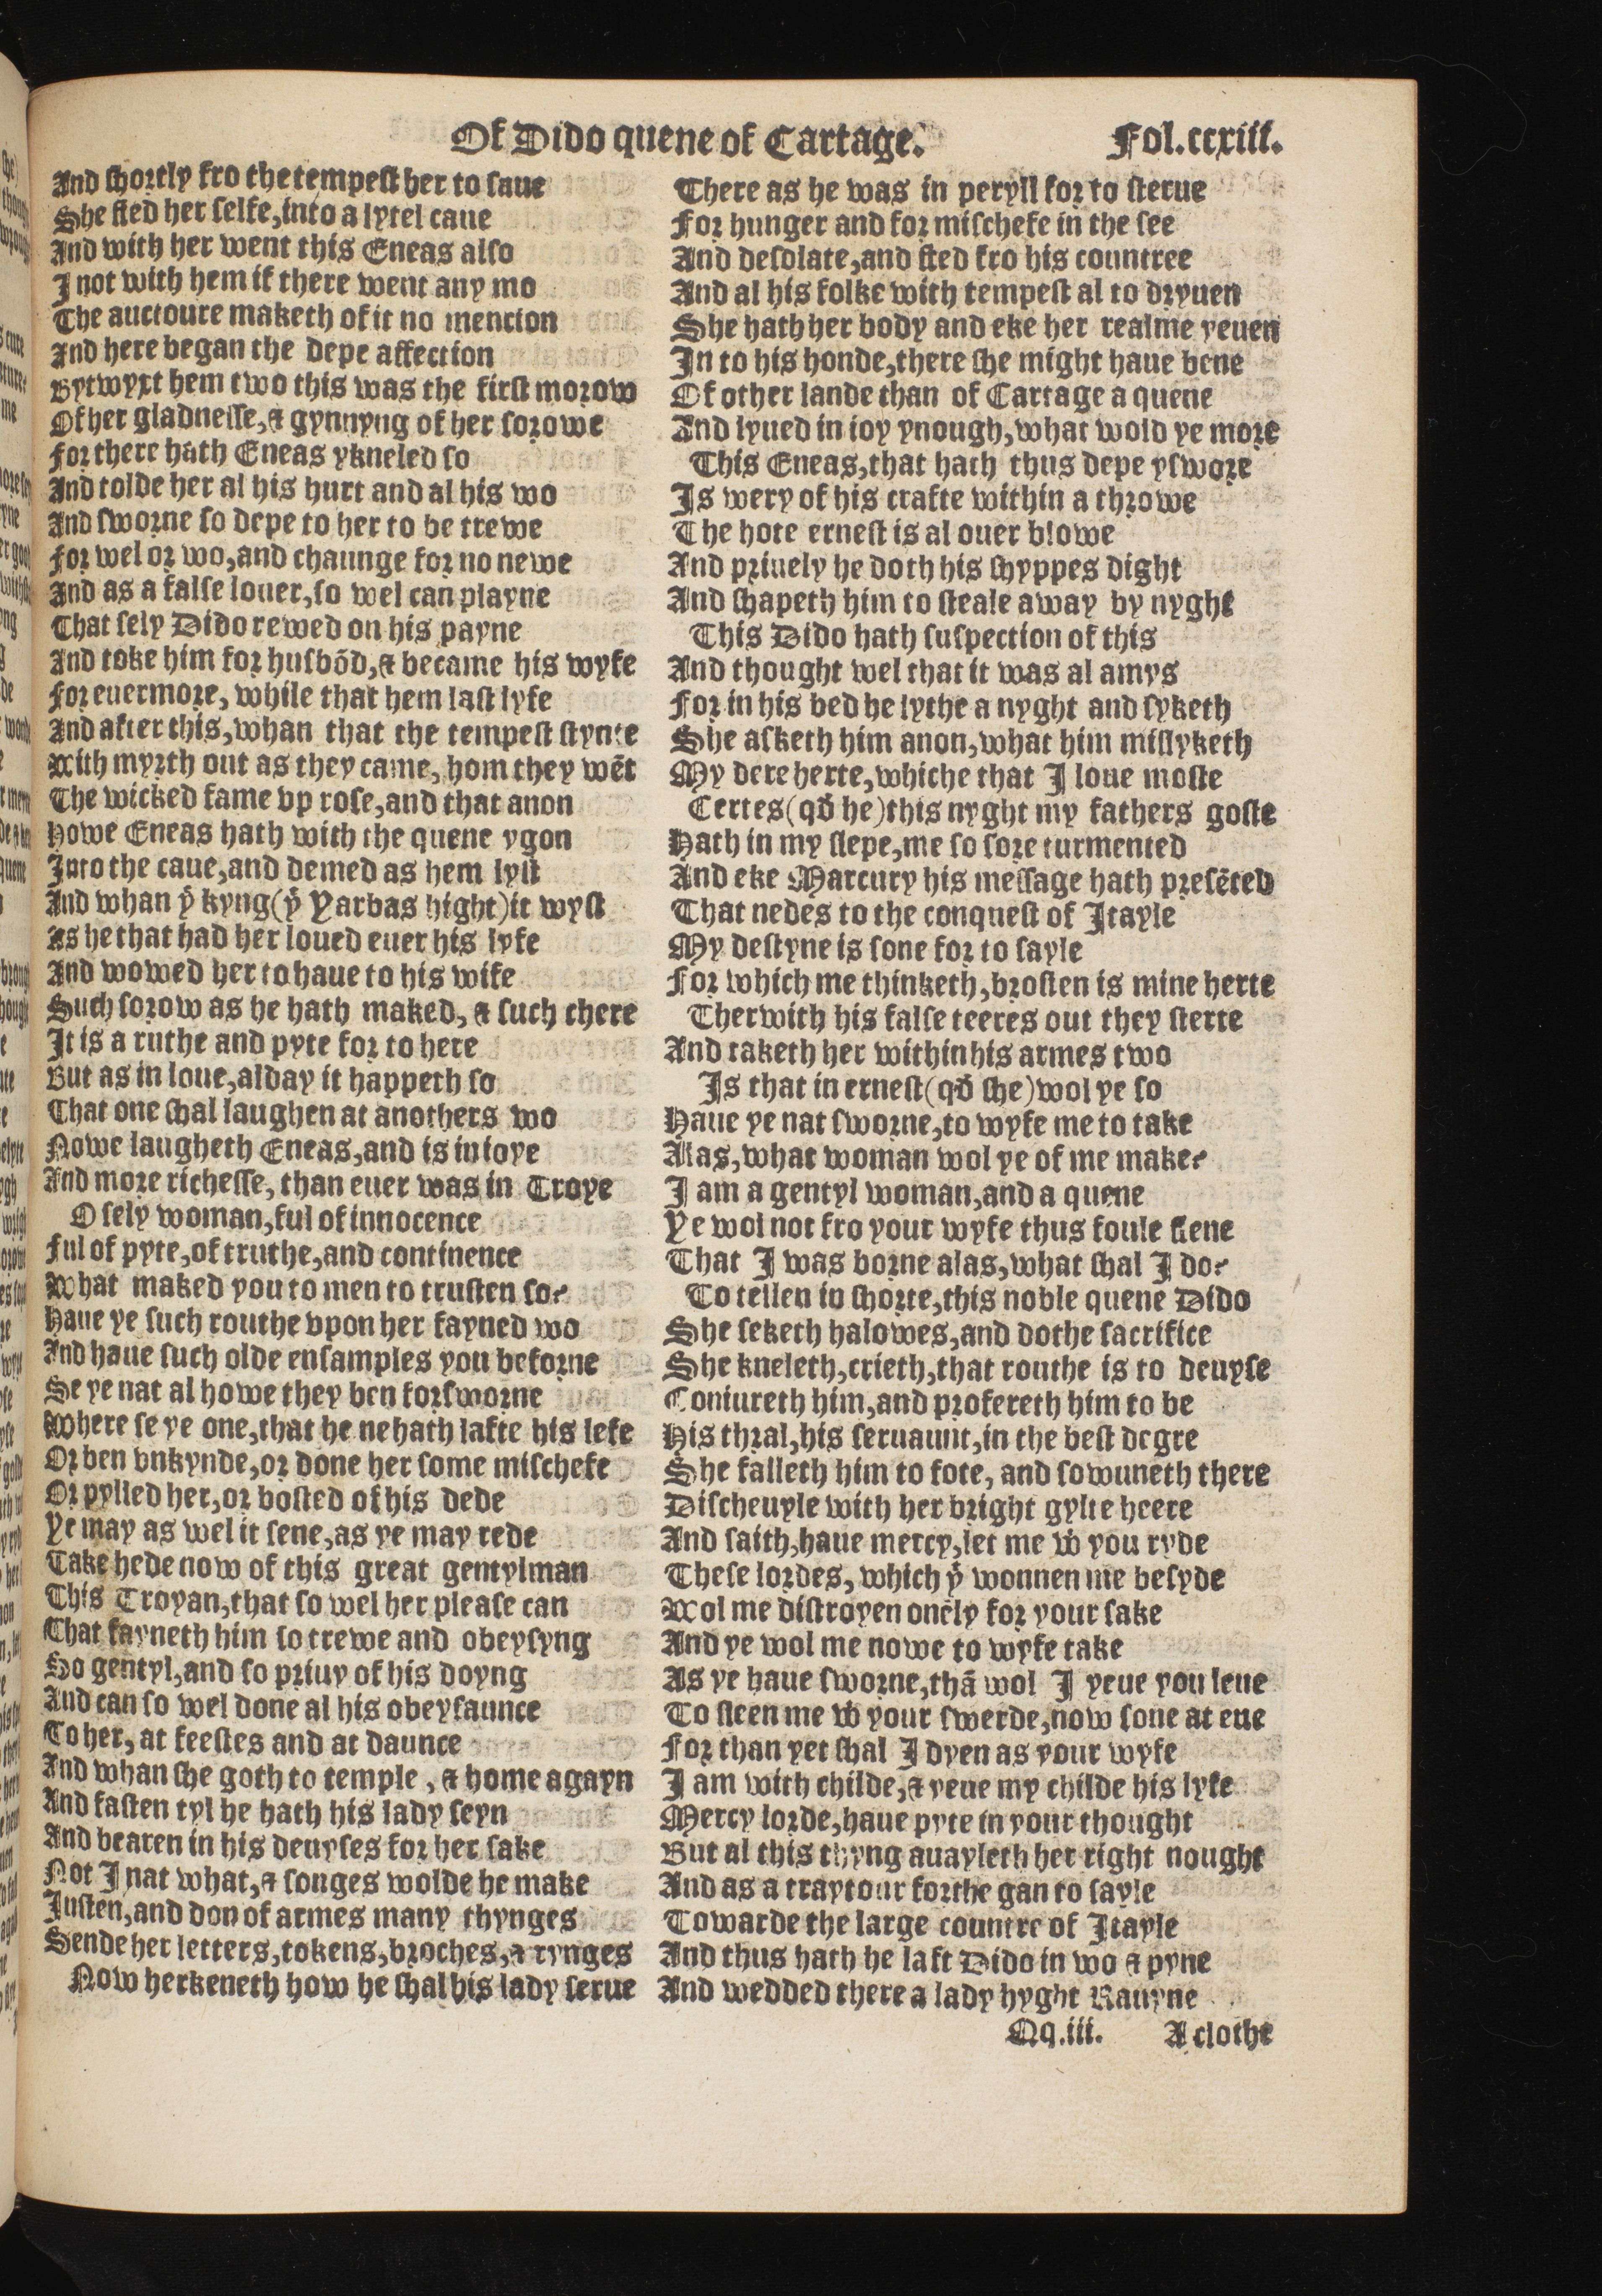 Of Dido quene of Cartage. Fol.ccxiii.
And shortly fro the tempest her to saue
She fled her selfe, into a lytel caue
And with her went this Eneas also
I not with hem if there went any mo
The auctoure maketh of it no mencion
And here began the depe affection
Bytwyxt hem two this was the first morow
Of her gladnesse, & gynnyng of her sorowe
For there hath Eneas ykneled so
And tolde her al his hurt and al his wo
And sworne so depe to her to be trewe
For wel or wo, and chaunge for no newe
And as a false louer, so wel can playne
That sely Dido rewed on his payne
And toke him for husbōd, & became his wyfe
For euermore, while that hem last lyfe
And after this, whan that the tempest stynte
With myrth out as they came, hom they wēt
The wicked fame vp rose, and that anon
Howe Eneas hath with the quene ygon
Into the caue, and demed as hem lyst
And whan yͭ kyng (yͭ Yarbas hight) it wyst
As he that had her loued euer his lyfe
And wowed her to haue to his wife
Such sorow as he hath maked, & such chere
It is a ruthe and pyte for to here
But as in loue, alday it happeth so
That one shal laughen at anothers wo
Nowe laugheth Eneas, and is in ioye
And more richesse, than euer was in Troye
O sely woman, ful of innocence
Ful of pyte, of truthe, and continence
What maked you to men to trusten so?
Haue ye such routhe vpon her fayned wo
And haue such olde ensamples you beforne
Se ye nat al howe they ben forsworne
Where se ye one, that he ne hath lafte his lefe
Or ben vnkynde, or done her some mischefe
Or pylled her, or bosted of his dede
Ye may as wel it sene, as ye may rede
Take hede now of this great gentylman
This Troyan, that so wel her please can
That fayneth him so trewe and obeysyng
So gentyl, and so priuy of his doyng
And can so wel done al his obeysaunce
To her, at feestes and at daunce
And whan she goth to temple, & home agayn
And fasten tyl he hath his lady seyn
And bearen in his deuyses for her sake
Not I nat what, & songes wolde he make
Iusten, and don of armes many thynges
Sende her letters, tokens, broches, & rynges
Now herkeneth how he shal his lady serue
There as he was in peryll for to sterue
For hunger and for mischefe in the see
And desolate, and fled fro his countree
And al his folke with tempest al to dryuen
She hath her body and eke her realme yeuen
In to his honde, there she might haue bene
Of other lande than of Cartage a quene
And lyued in ioy ynough, what wold ye more
This Eneas, that hath thus depe yswore
Is wery of his crafte within a throwe
The hote ernest is al ouer blowe
And priuely he doth his shyppes dight
And shapeth him to steale away by nyght
This Dido hath suspection of this
And thought wel that it was al amys
For in his bed he lythe a nyght and syketh
She asketh him anon, what him mislyketh
My dere herte, whiche that I loue moste
Certes (qd̄ he) this nyght my fathers goste
Hath in my slepe, me so sore turmented
And eke Marcury his message hath presēted
That nedes to the conquest of Itayle
My destyne is sone for to sayle
For which me thinketh, brosten is mine herte
Therwith his false teeres out they sterte
And taketh her within his armes two
Is that in ernest (qd̄ she) wol ye so
Haue ye nat sworne, to wyfe me to take
Alas, what woman wol ye of me make?
I am a gentyl woman, and a quene
Ye wol not fro your wyfe thus foule flene
That I was borne alas, what shal I do?
To tellen in shorte, this noble quene Dido
She seketh halowes, and dothe sacrifice
She kneleth, crieth, that routhe is to deuyse
Coniureth him, and profereth him to be
His thral, his seruaunt, in the best degre
She falleth him to fote, and sowuneth there
Discheuyle with her bright gylte heere
And saith, haue mercy, let me wͭ you ryde
These lordes, which yͭ wonnen me besyde
Wol me distroyen onely for your sake
And ye wol me nowe to wyfe take
As ye haue sworne, thā wol I yeue you leue
To sleen me wͭ your swerde, now sone at eue
For than yet shal I dyen as your wyfe
I am with childe, & yeue my childe his lyfe
Mercy lorde, haue pyte in your thought
But al this thyng auayleth her right nought
And as a traytour forthe gan to sayle
Towarde the large countre of Itayle
And thus hath he laft Dido in wo & pyne
And wedded there a lady hyght Lauyne
Qq.iii. A clothe